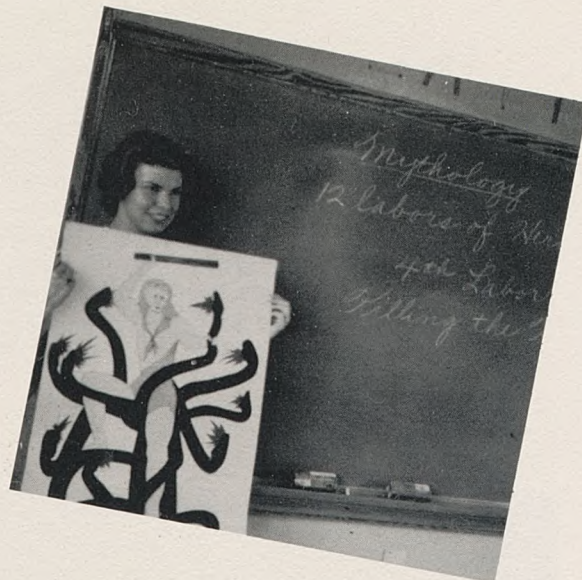 Mythology
12 labors of Her
4th Labor
Killing the